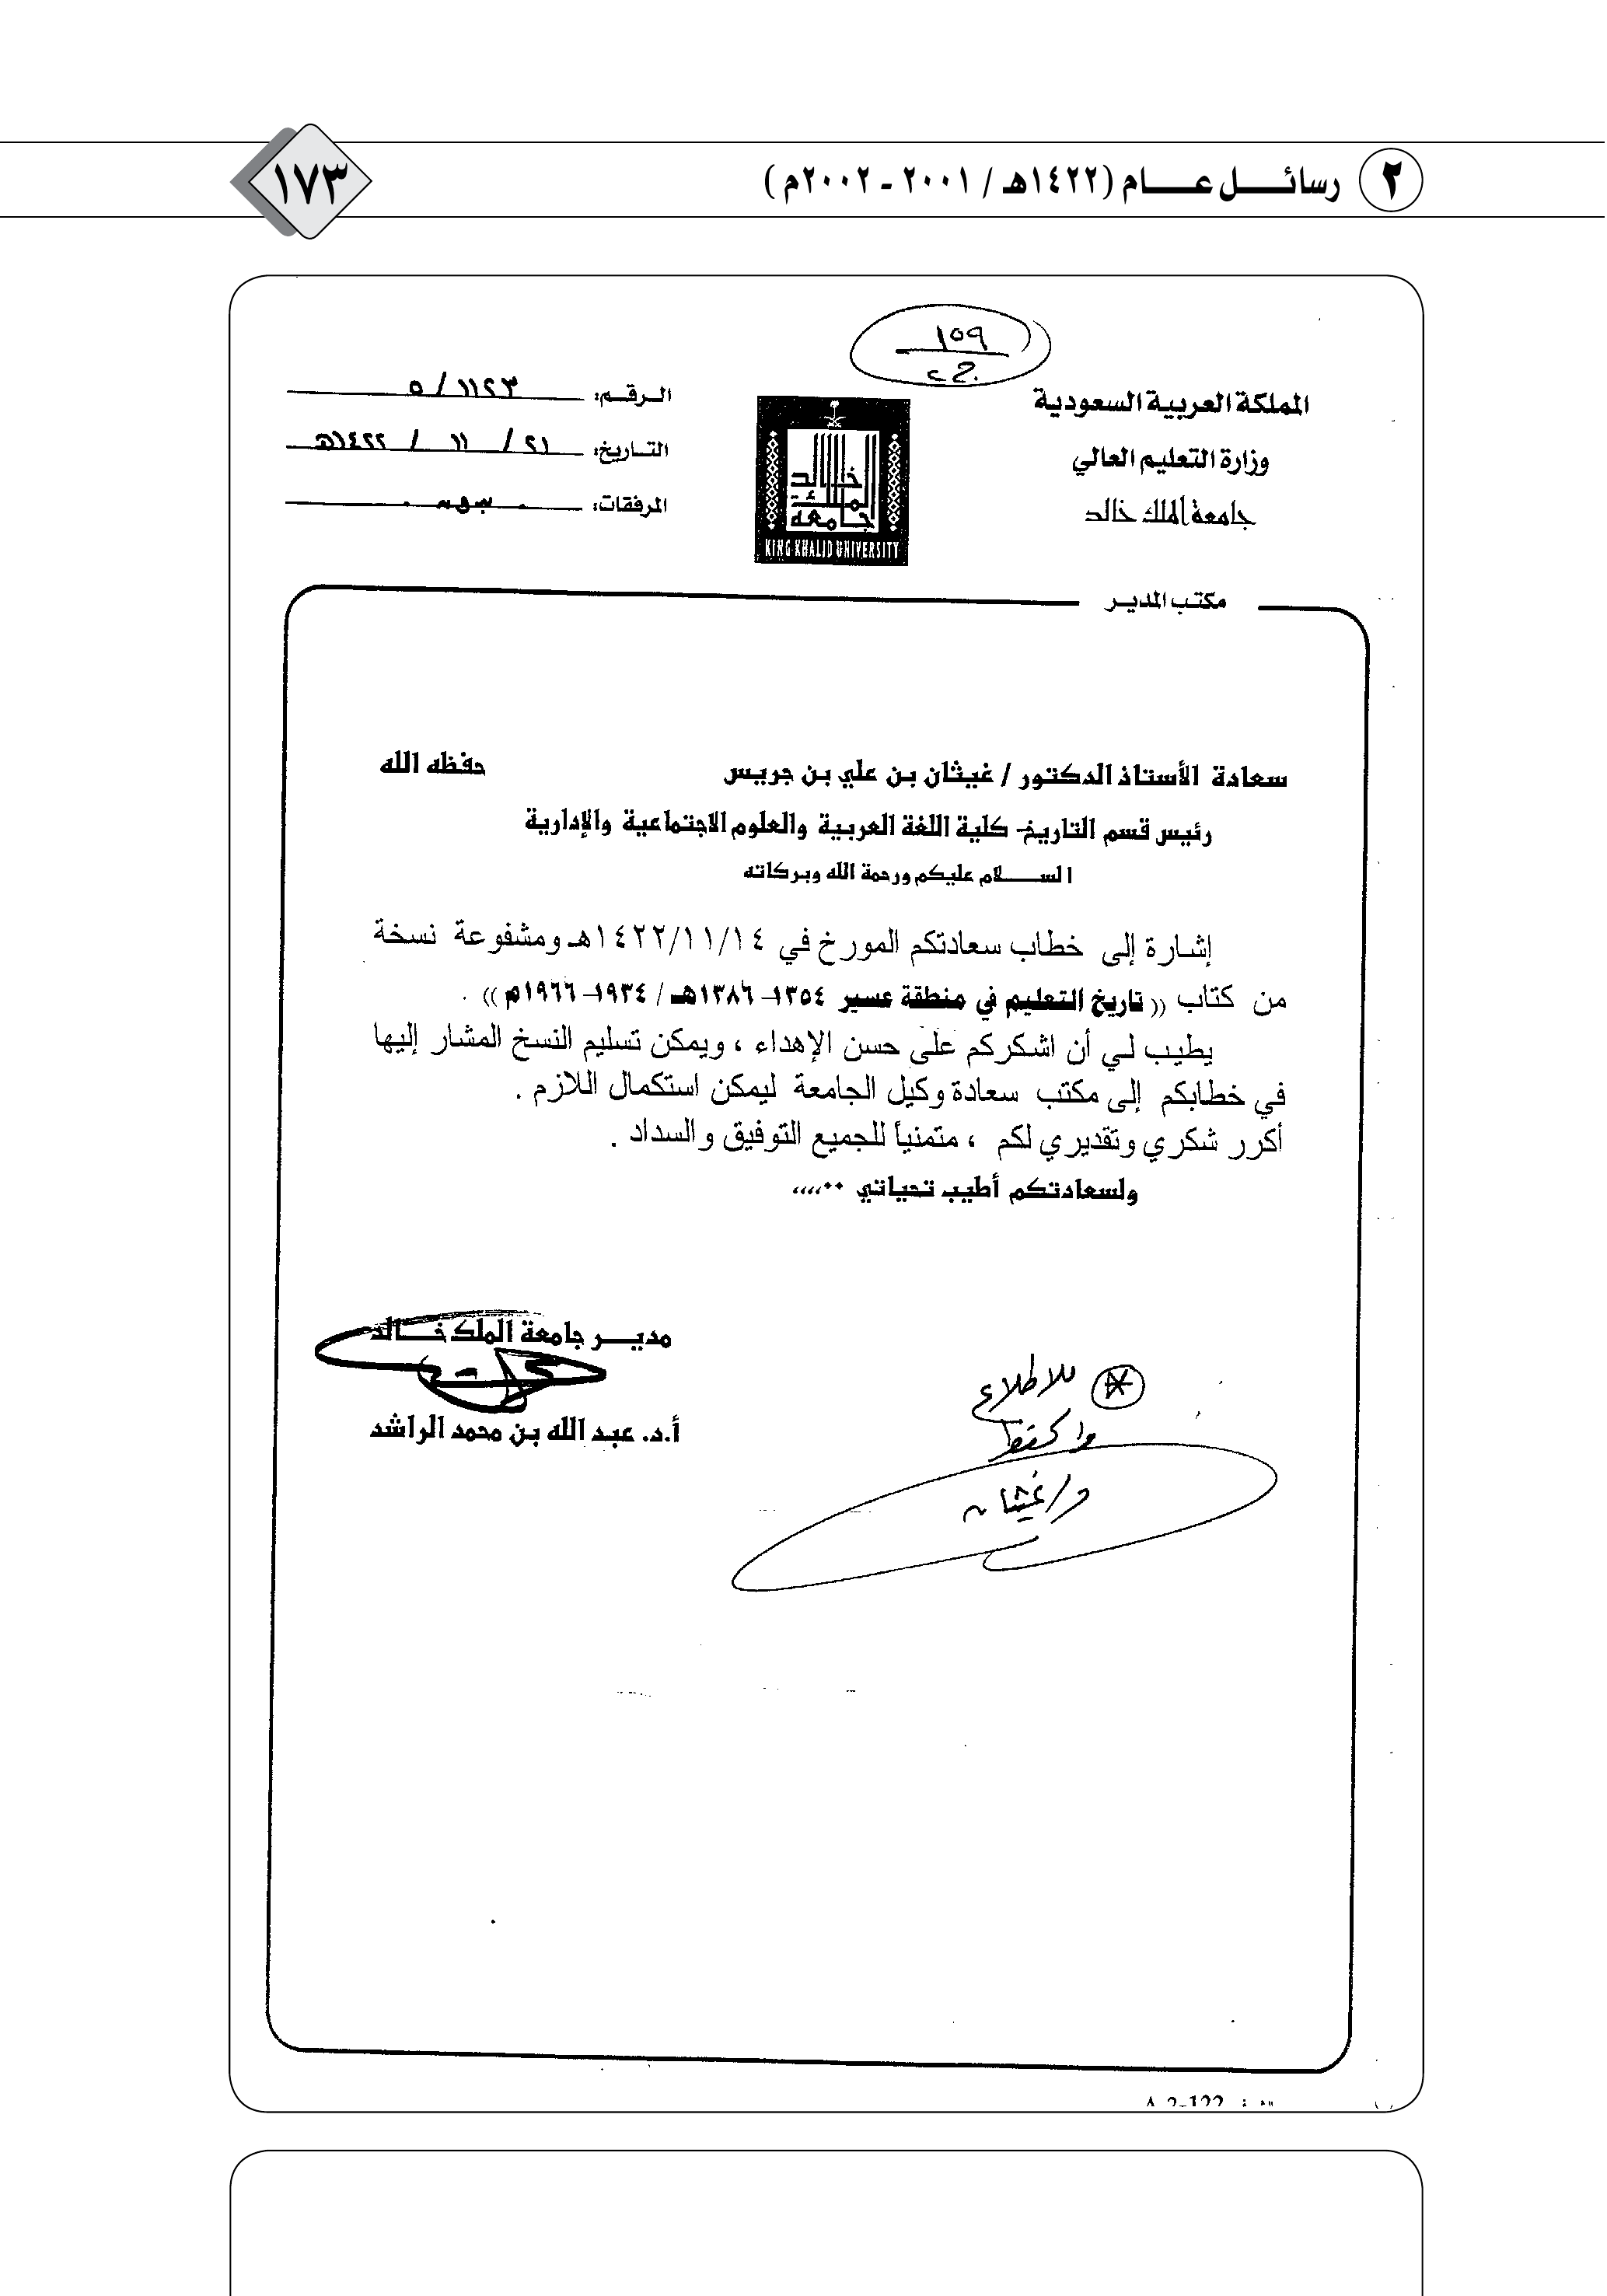 ٢ رسائل عام (١٤٢٢هـ / ٢٠٠١ - ٢٠٠٢م)
١٧٣
١٥٩
المملكة العربية السعودية
وزارة التعليم العالي
جامعة الملك خالد
خالد
الملك
جامعة
KING KHALID UNIVERSITY
الرقم: ١١٢٣ / ٥
التاريخ: ٢١ / ١١ / ١٤٢٢هـ
المرفقات:
مكتب المدير
سعادة الأستاذ الدكتور / غيثان بن علي بن جريس حفظه الله
رئيس قسم التاريخ- كلية اللغة العربية والعلوم الاجتماعية والإدارية
السلام عليكم ورحمة الله وبركاته
إشارة إلى خطاب سعادتكم المورخ في ١٤٢٢/١١/١٤هـ ومشفوعة نسخة
من كتاب (( تاريخ التعليم في منطقة عسير ١٣٥٤- ١٣٨٦هـ / ١٩٣٤- ١٩٦٦م )) .
يطيب لي أن اشكركم على حسن الإهداء ، ويمكن تسليم النسخ المشار إليها
في خطابكم إلى مكتب سعادة وكيل الجامعة ليمكن استكمال اللازم .
أكرر شكري وتقديري لكم ، متمنياً للجميع التوفيق والسداد .
ولسعادتكم أطيب تحياتي ٠٠،،،،
مديـر جامعة الملك خـالد
أ.د. عبد الله بن محمد الراشد
للاطلاع
د/غيثان